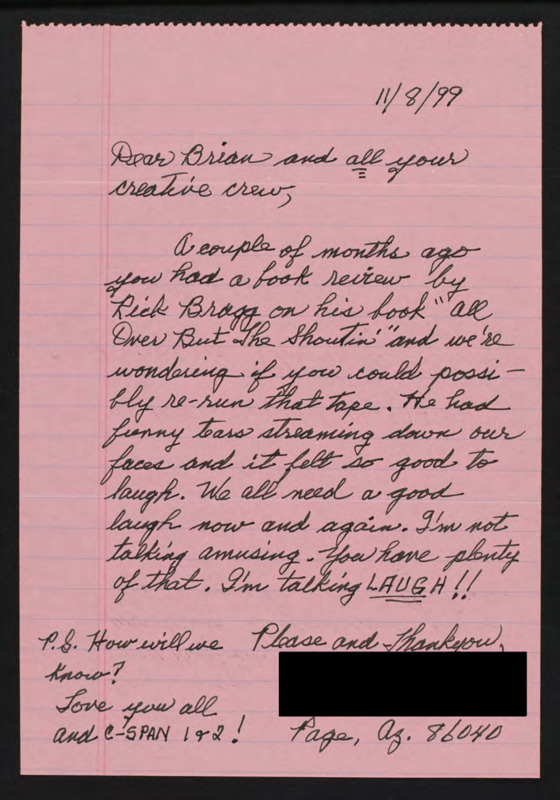 11/8/99
Dear Brian and all your
creative crew,
A couple of months ago
you had a book review by
Rick Bragg on his book "All
Over But The Shoutin'" and we're
wondering if you could possi-
bly re-run that tape. He had
funny tears streaming down our
faces and it felt so good to
laugh. We all need a good
laugh now and again. I'm not
talking amusing. You have plenty
of that. I'm talking LAUGH!!
Please and Thankyou,
Page, Az. 86040
P.S. How will we
know?
Love you all
and C-SPAN 1 & 2!